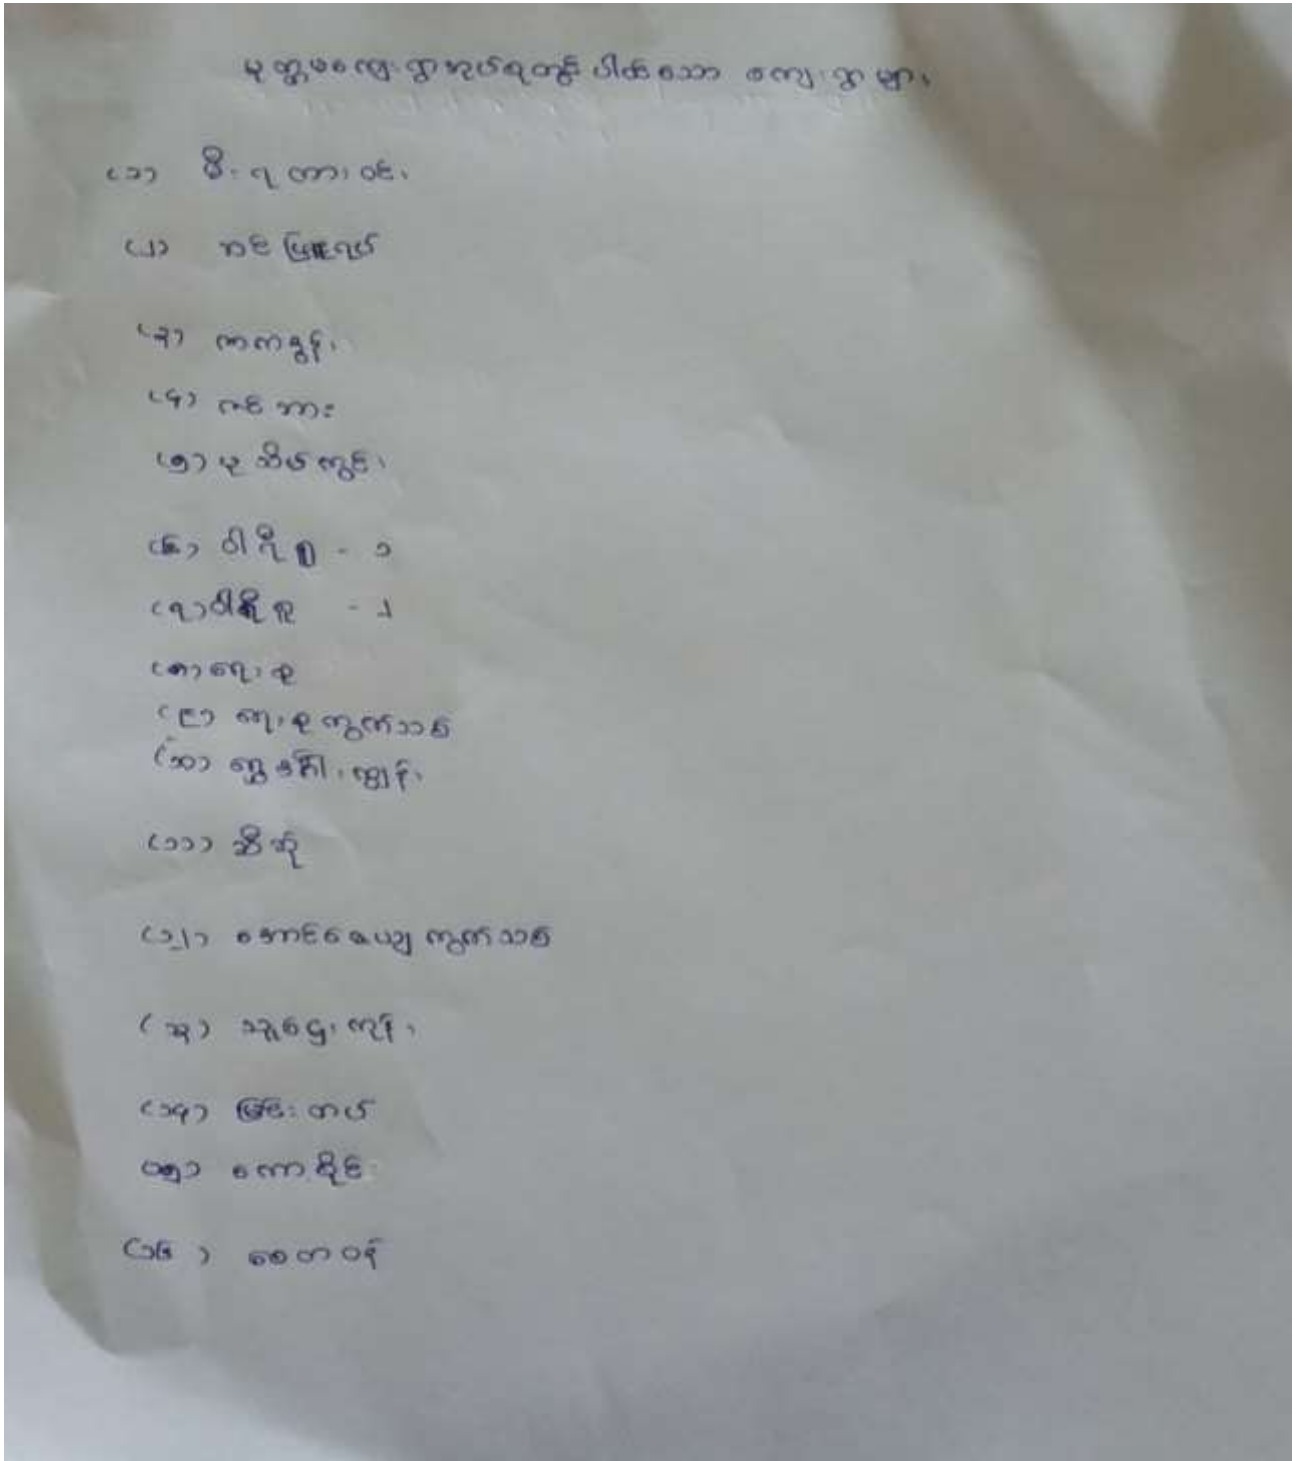 မုတ္တမကျေးရွာအုပ်စုတွင် ပါဝင်သော ကျေးရွာများ
(၁) မီးရထားဝင်း
(၂) ဆင်ဖြူရပ်
(၃) ကကျွန်း
(၄) ကင်းသား
(၅) မုသိမ်ကွင်း
(၆) ပါရီစု - ၁
(၇) ပါရီစု - ၂
(၈) ဈေးစု
(၉) ဈေးစုကွက်သစ်
(၁၀) ရွှေနင်္ဂါးကျွန်း
(၁၁) ဆီဆုံ
(၁၂) အောင်ဇေယျကွက်သစ်
(၁၃) သူဌေးကုန်း
(၁၄) မြင်းကပ်
(၁၅) ကော့နှိုင်း
(၁၆) ဇေတဝန်